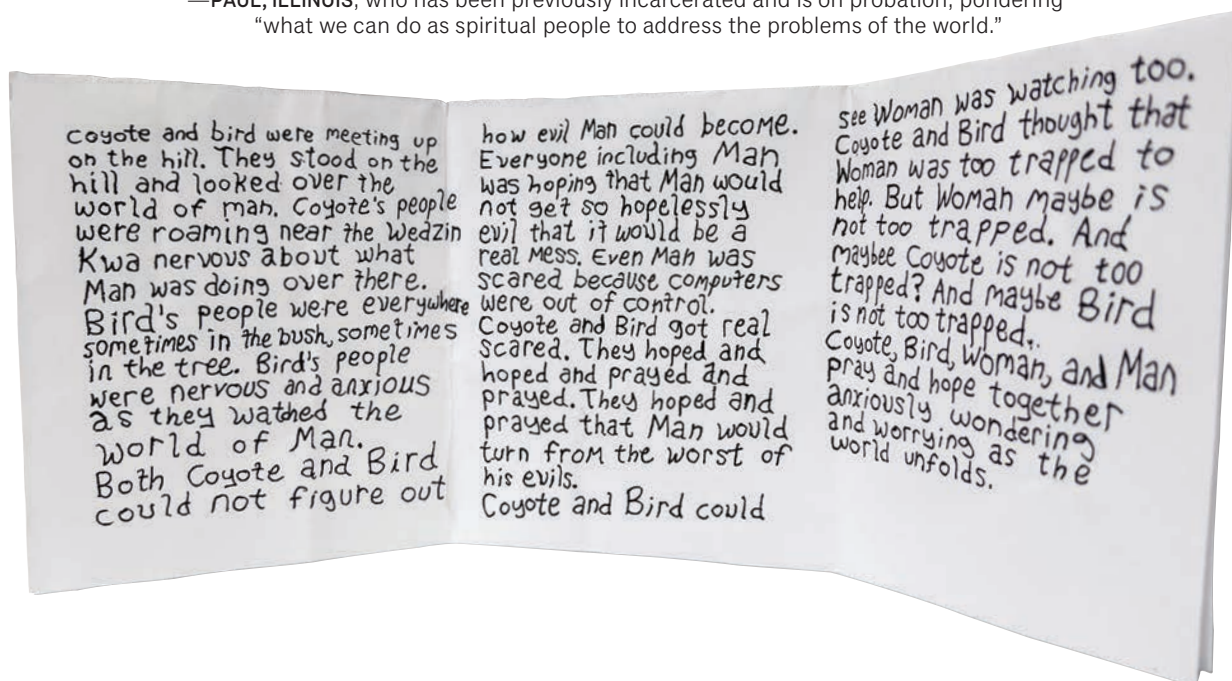 —PAUL, ILLINOIS, who has been previously incarcerated and is on probation, pondering
“what we can do as spiritual people to address the problems of the world.”
coyote and bird were meeting up
on the hill. They stood on the
hill and looked over the
world of man. Coyote's people
were roaming near the Wedzin
Kwa nervous about what
Man was doing over there.
Bird's people were everywhere
sometimes in the bush, sometimes
in the tree. Bird's people
were nervous and anxious
as they wathed the
world of Man.
Both Coyote and Bird
could not figure out
how evil Man could become.
Everyone including Man
was hoping that Man would
not get so hopelessly
evil that it would be a
real mess. Even Man was
scared because computers
were out of control.
Coyote and Bird got real
scared. They hoped and
hoped and prayed and
prayed. They hoped and
prayed that Man would
turn from the worst of
his evils.
Coyote and Bird could
see Woman was watching too.
Coyote and Bird thought that
Woman was too trapped to
help. But Woman maybe is
not too trapped. And
maybee Coyote is not too
trapped? And maybe Bird
is not too trapped..
Coyote, Bird, Woman, and Man
pray and hope together
anxiously wondering
and worrying as the
world unfolds.